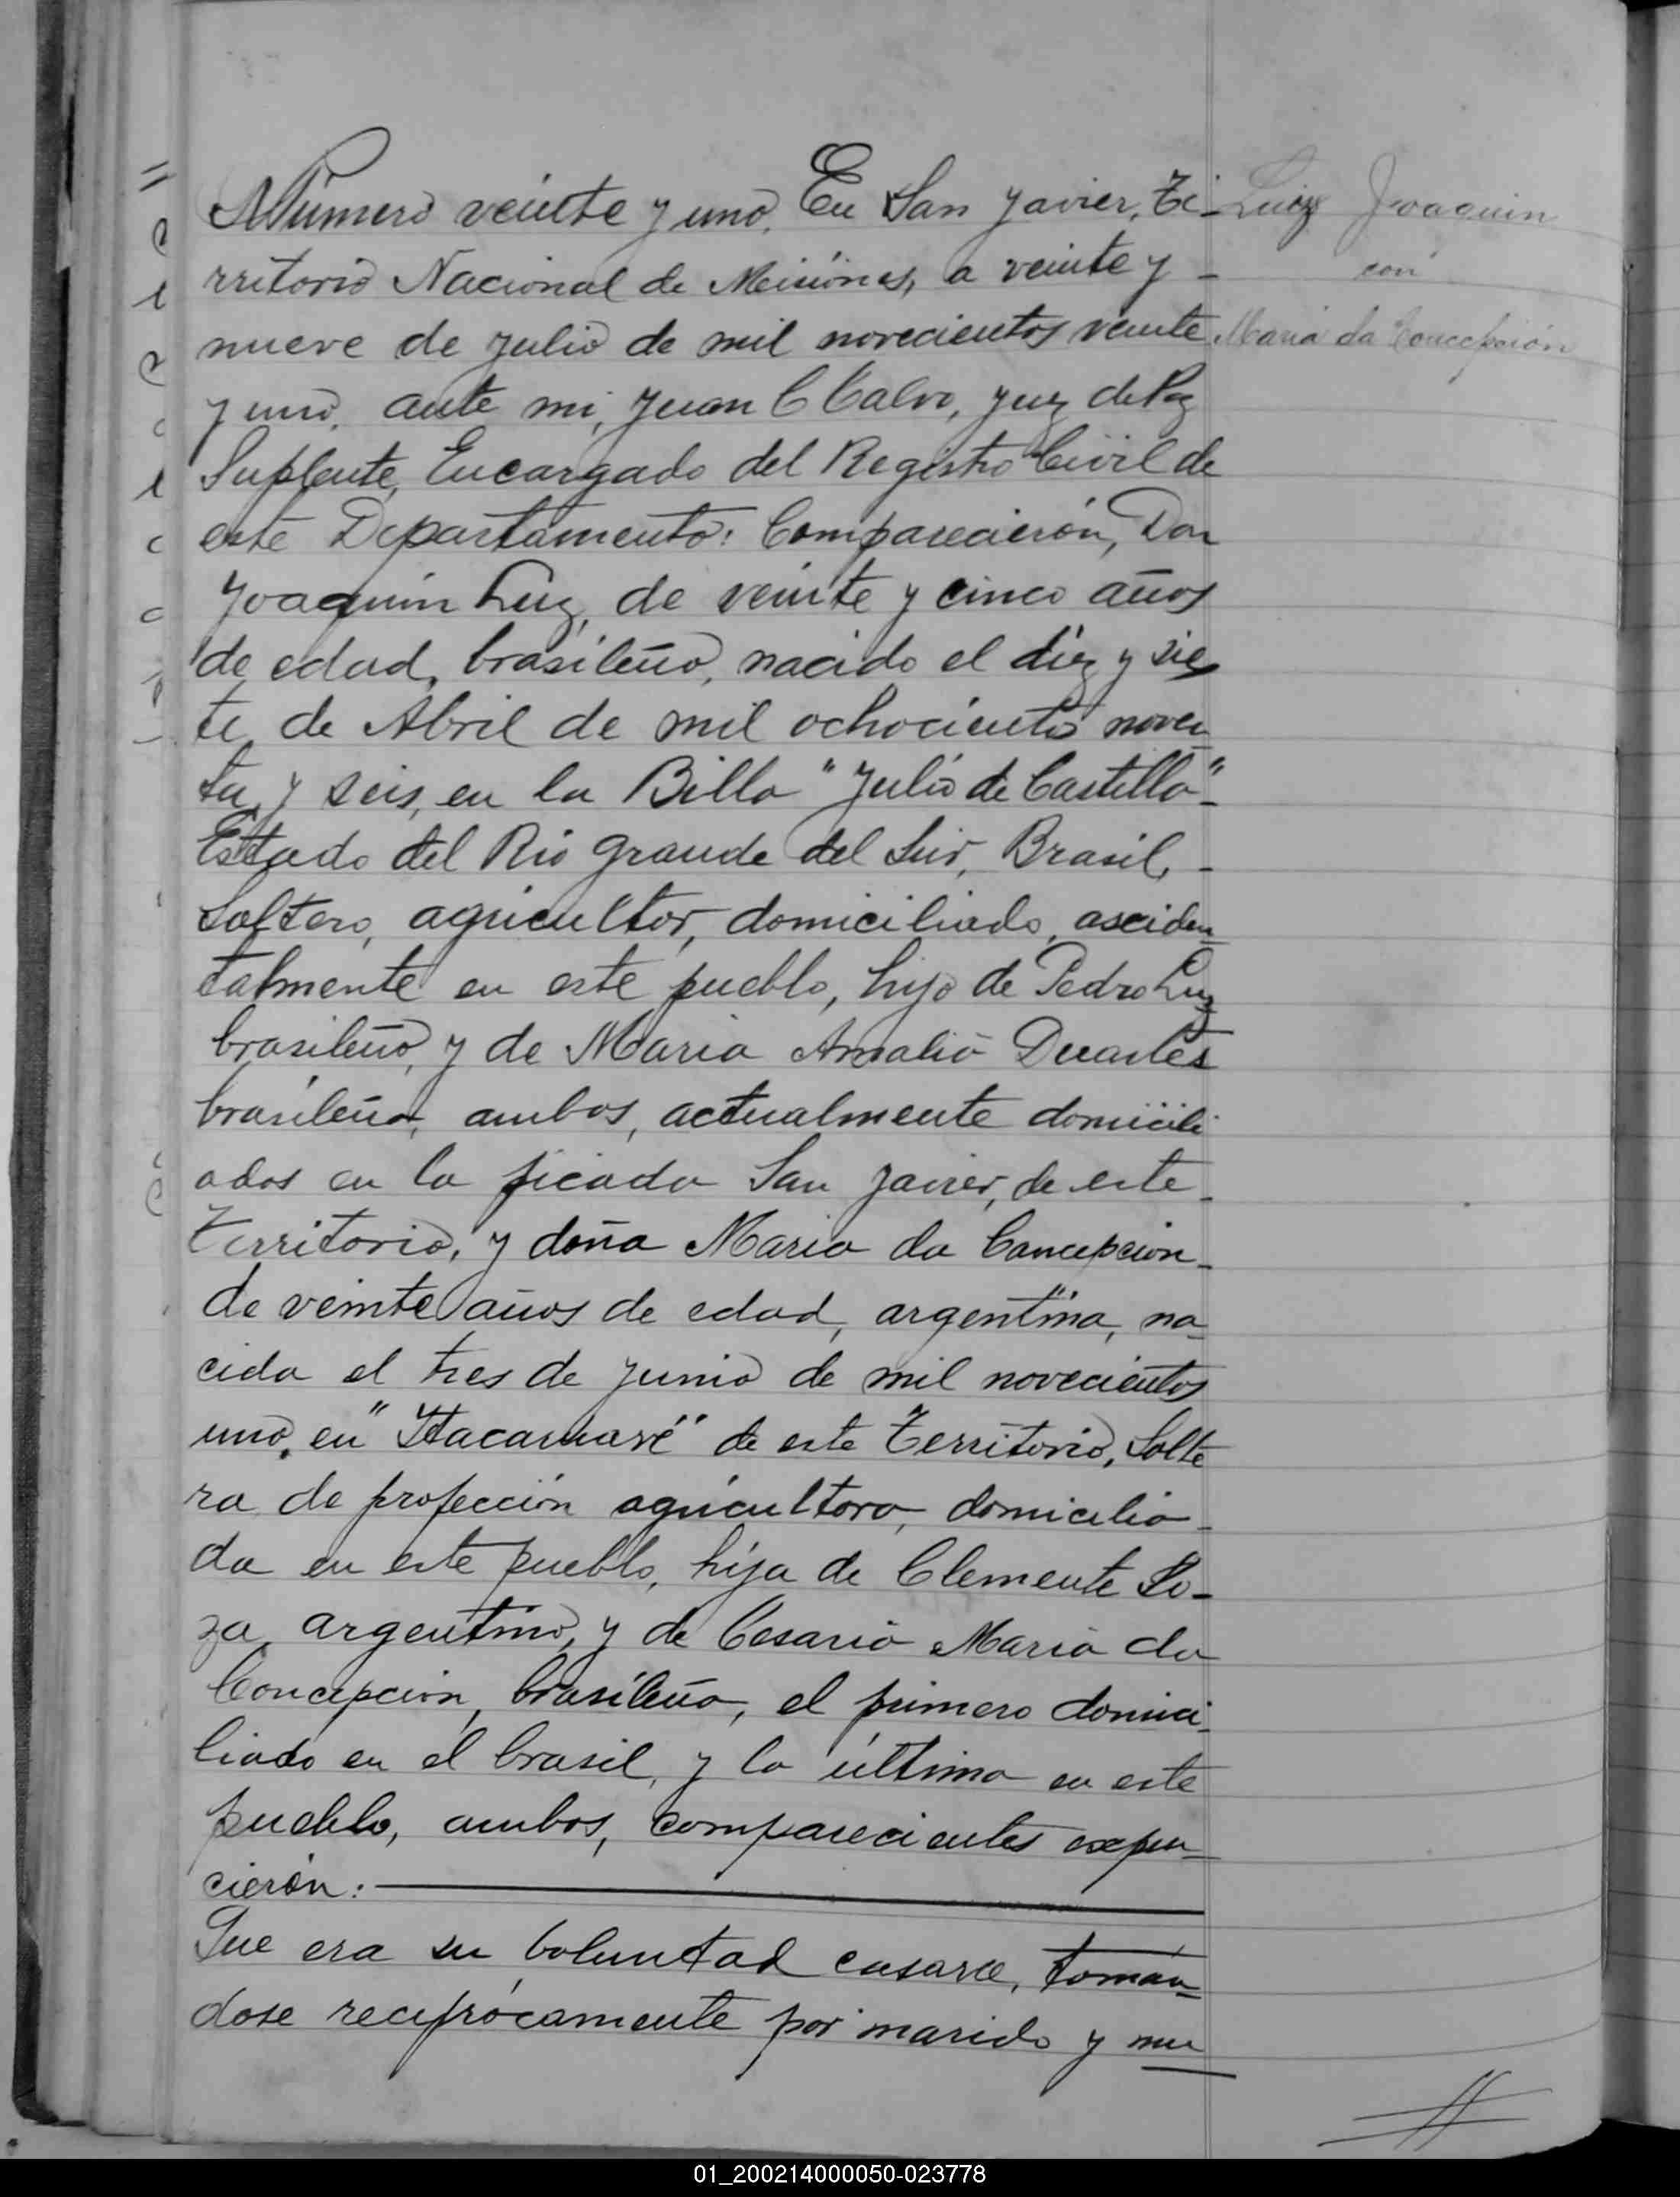 Número veinte y uno. En San Javier, Te-
rritorio Nacional de Misiones, a veinte y -
nueve de julio de mil novecientos veinte
y uno, ante mi, Juan C Calvo, Juez de Paz
Suplente, Encargado del Registro Civil de
este Departamento: Comparecierón, Don
Joaquin Luz, de veinte y cinco años
de edad, brasileño, nacido el diez y sie
te de Abril de mil ochociento noven
ta y seis, en la Billa "Julio de Castillo" -
Estado del Rio grande del Sur, Brasil, -
Soltero, agricultor, domiciliado, acciden
talmente en este pueblo, hijo de Pedro Luz
brasileño, y de Maria Amalia Duartes
brasileña, ambos, actualmente domicili
ados en la picada San Javier, de este -
Territorio, y doña Maria da Concepcion -
de veinte años de edad, argentina, na
cida el tres de junio de mil novecientos
uno, en "Itacaruaré" de este Territorio, Solte
ra de profección agricultora, domicilia -
da en este pueblo, hija de Clemente So -
za, argentino, y de Cesaria Maria da
Concepcion, brasileña, el primero domici
liado en el brasil, y la última en este
pueblo, ambos, comparecientes expu
cierón:
Que era su boluntad casarce, toman
dose reciprocamente por marido y mu
Luiz Joaquin
con
Maria da Concepción
01_200214000050-023778